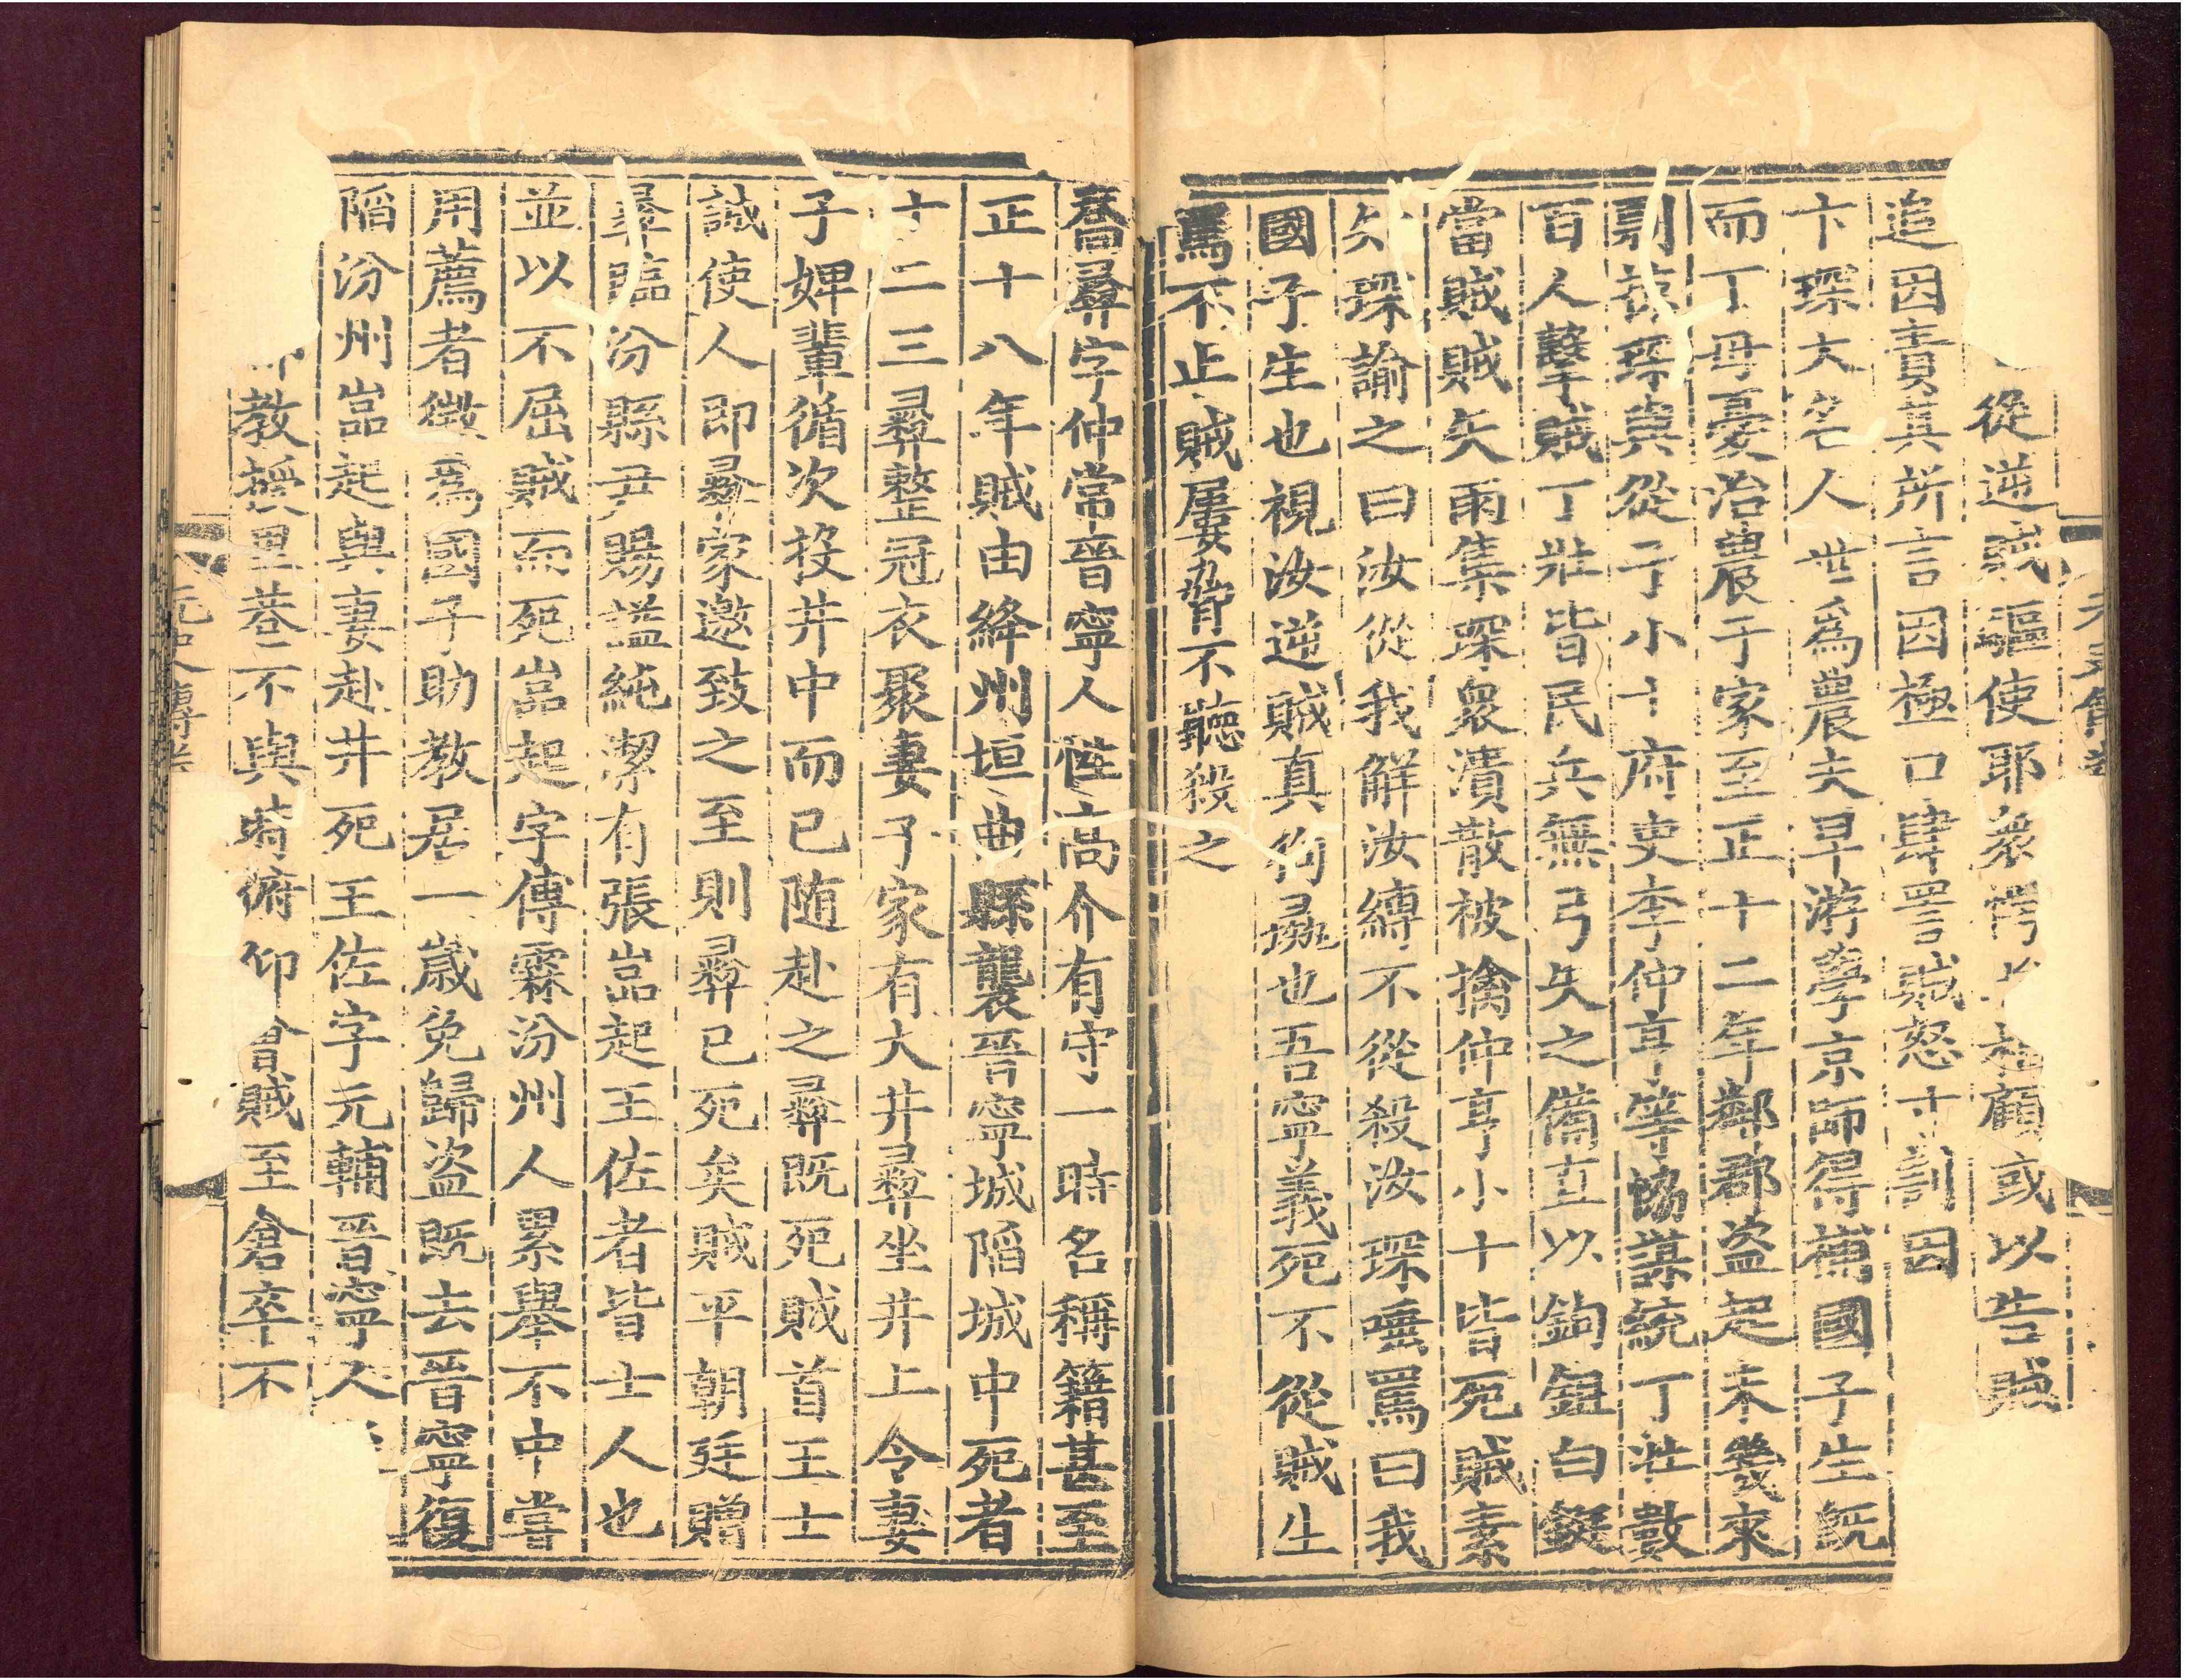 從逆賊驅使耶衆愕相顧或以告賊
追因責其所言因極口肆詈賊怒寸剮因
卞琛大名人世爲農夫早游學京師得補國子生旣
而丁母憂治農于家至正十二年鄰郡盜起未幾來
剽掠琛與從子小十府吏李仲亨等協謀統丁壯數
百人擊賊丁壯皆民兵無弓矢之備直以鉤鉏白鋋
當賊賊矢雨集琛衆潰散被擒仲亨小十皆死賊素
知琛諭之曰汝從我解汝縛不從殺汝琛唾罵曰我
國子生也視汝逆賊真狗彘也吾寧義死不從賊生
罵不止賊屢脅不聽殺之
喬彝字仲常晉寧人性高介有守一時名稱籍甚至
正十八年賊由絳州垣曲縣襲晉寧城陷城中死者
十二三彝整冠衣聚妻子家有大井彝坐井上令妻
子婢輩循次投井中而已随赴之彝既死賊首王士
誠使人即彝家邀致之至則彝已死矣賊平朝廷贈
彝臨汾縣尹賜謚純潔有張嵓起王佐者皆士人也
並以不屈賊而死嵓起字傅霖汾州人累舉不中嘗
用薦者徵爲國子助教居一歲免歸盜既去晉寧復
陷汾州嵓起與妻赴井死王佐字元輔晉寧人
教授里巷不與時俯仰會賊至倉卒不